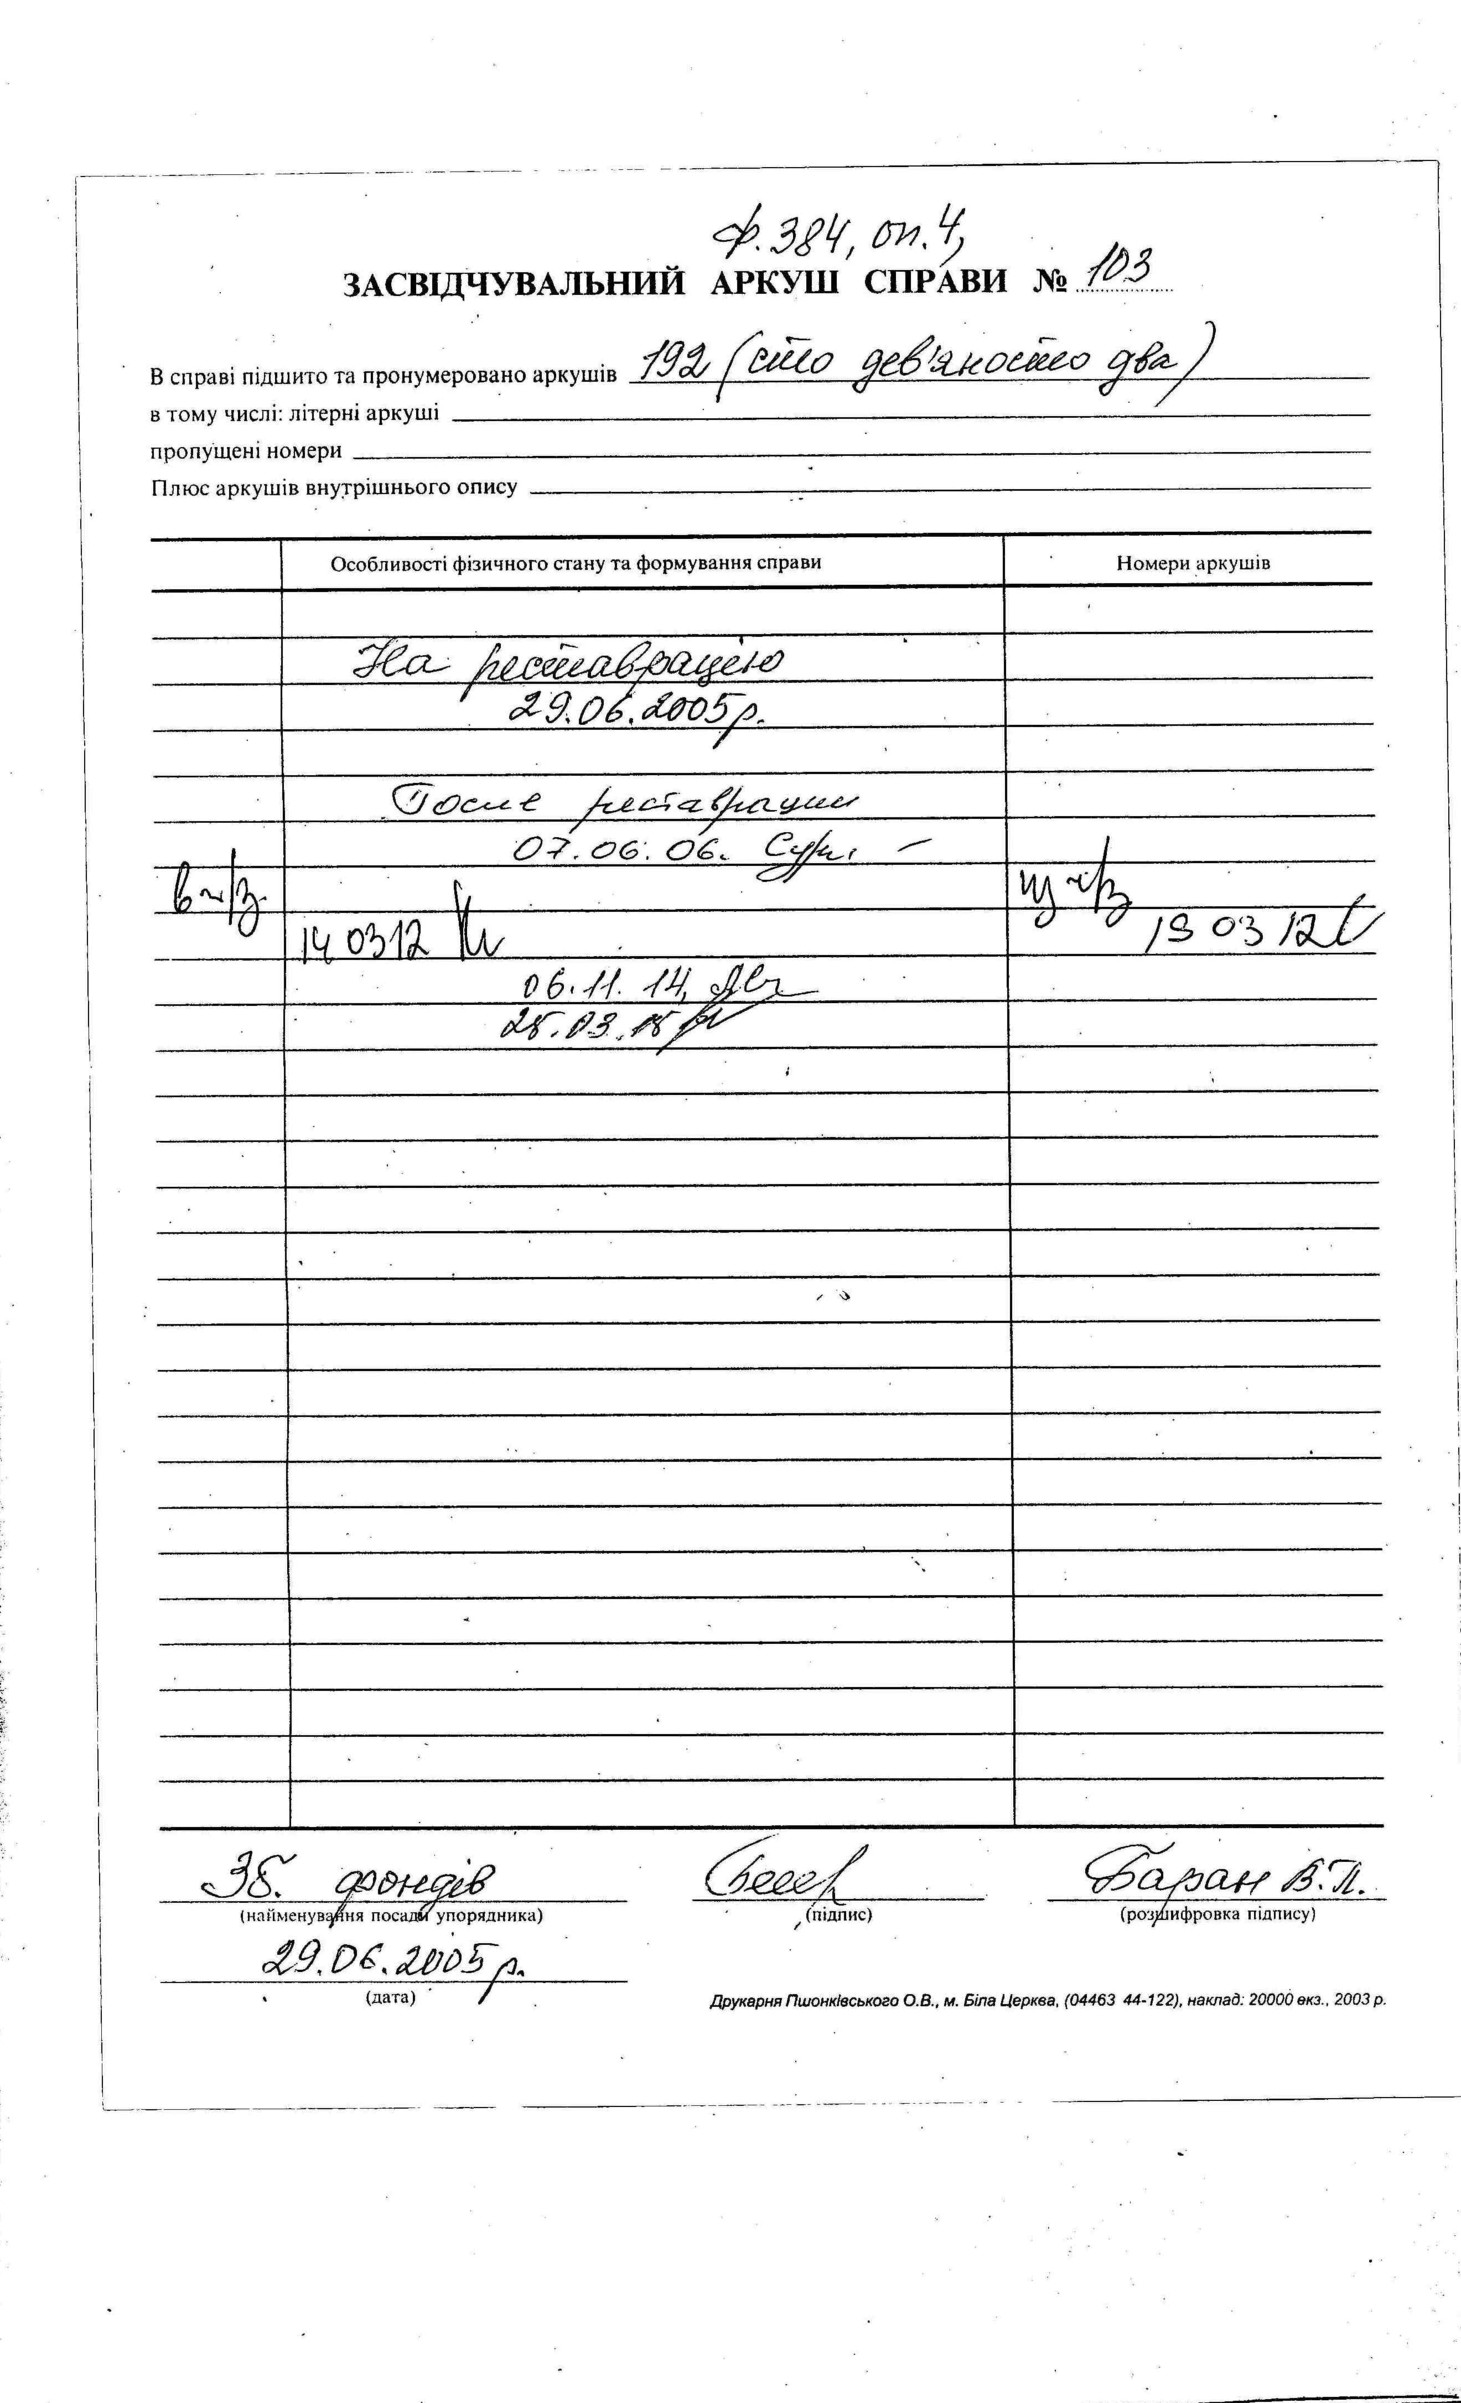 ф. 384, оп. 4,
ЗАСВІДЧУВАЛЬНИЙ АРКУШ СПРАВИ № 103
В справі підшито та пронумеровано аркушів 192 (сто дев'яносто два)
в тому числі: літерні аркуші
пропущені номери
Плюс аркушів внутрішнього опису
Особливості фізичного стану та формування справи Номери аркушів
На реставрацію
29.06.2005р.
После реставрации
07.06.06.
140312 190312
06.11.14,
зб. фондів Баран В.П.
(найменування посади упорядника) (підпис) (розшифровка підпису)
29.06.2005 р.
(дата)
Друкарня Пшонківського О.В., м. Біла Церква, (04463 44-122), наклад: 20000 екз., 2003 р.